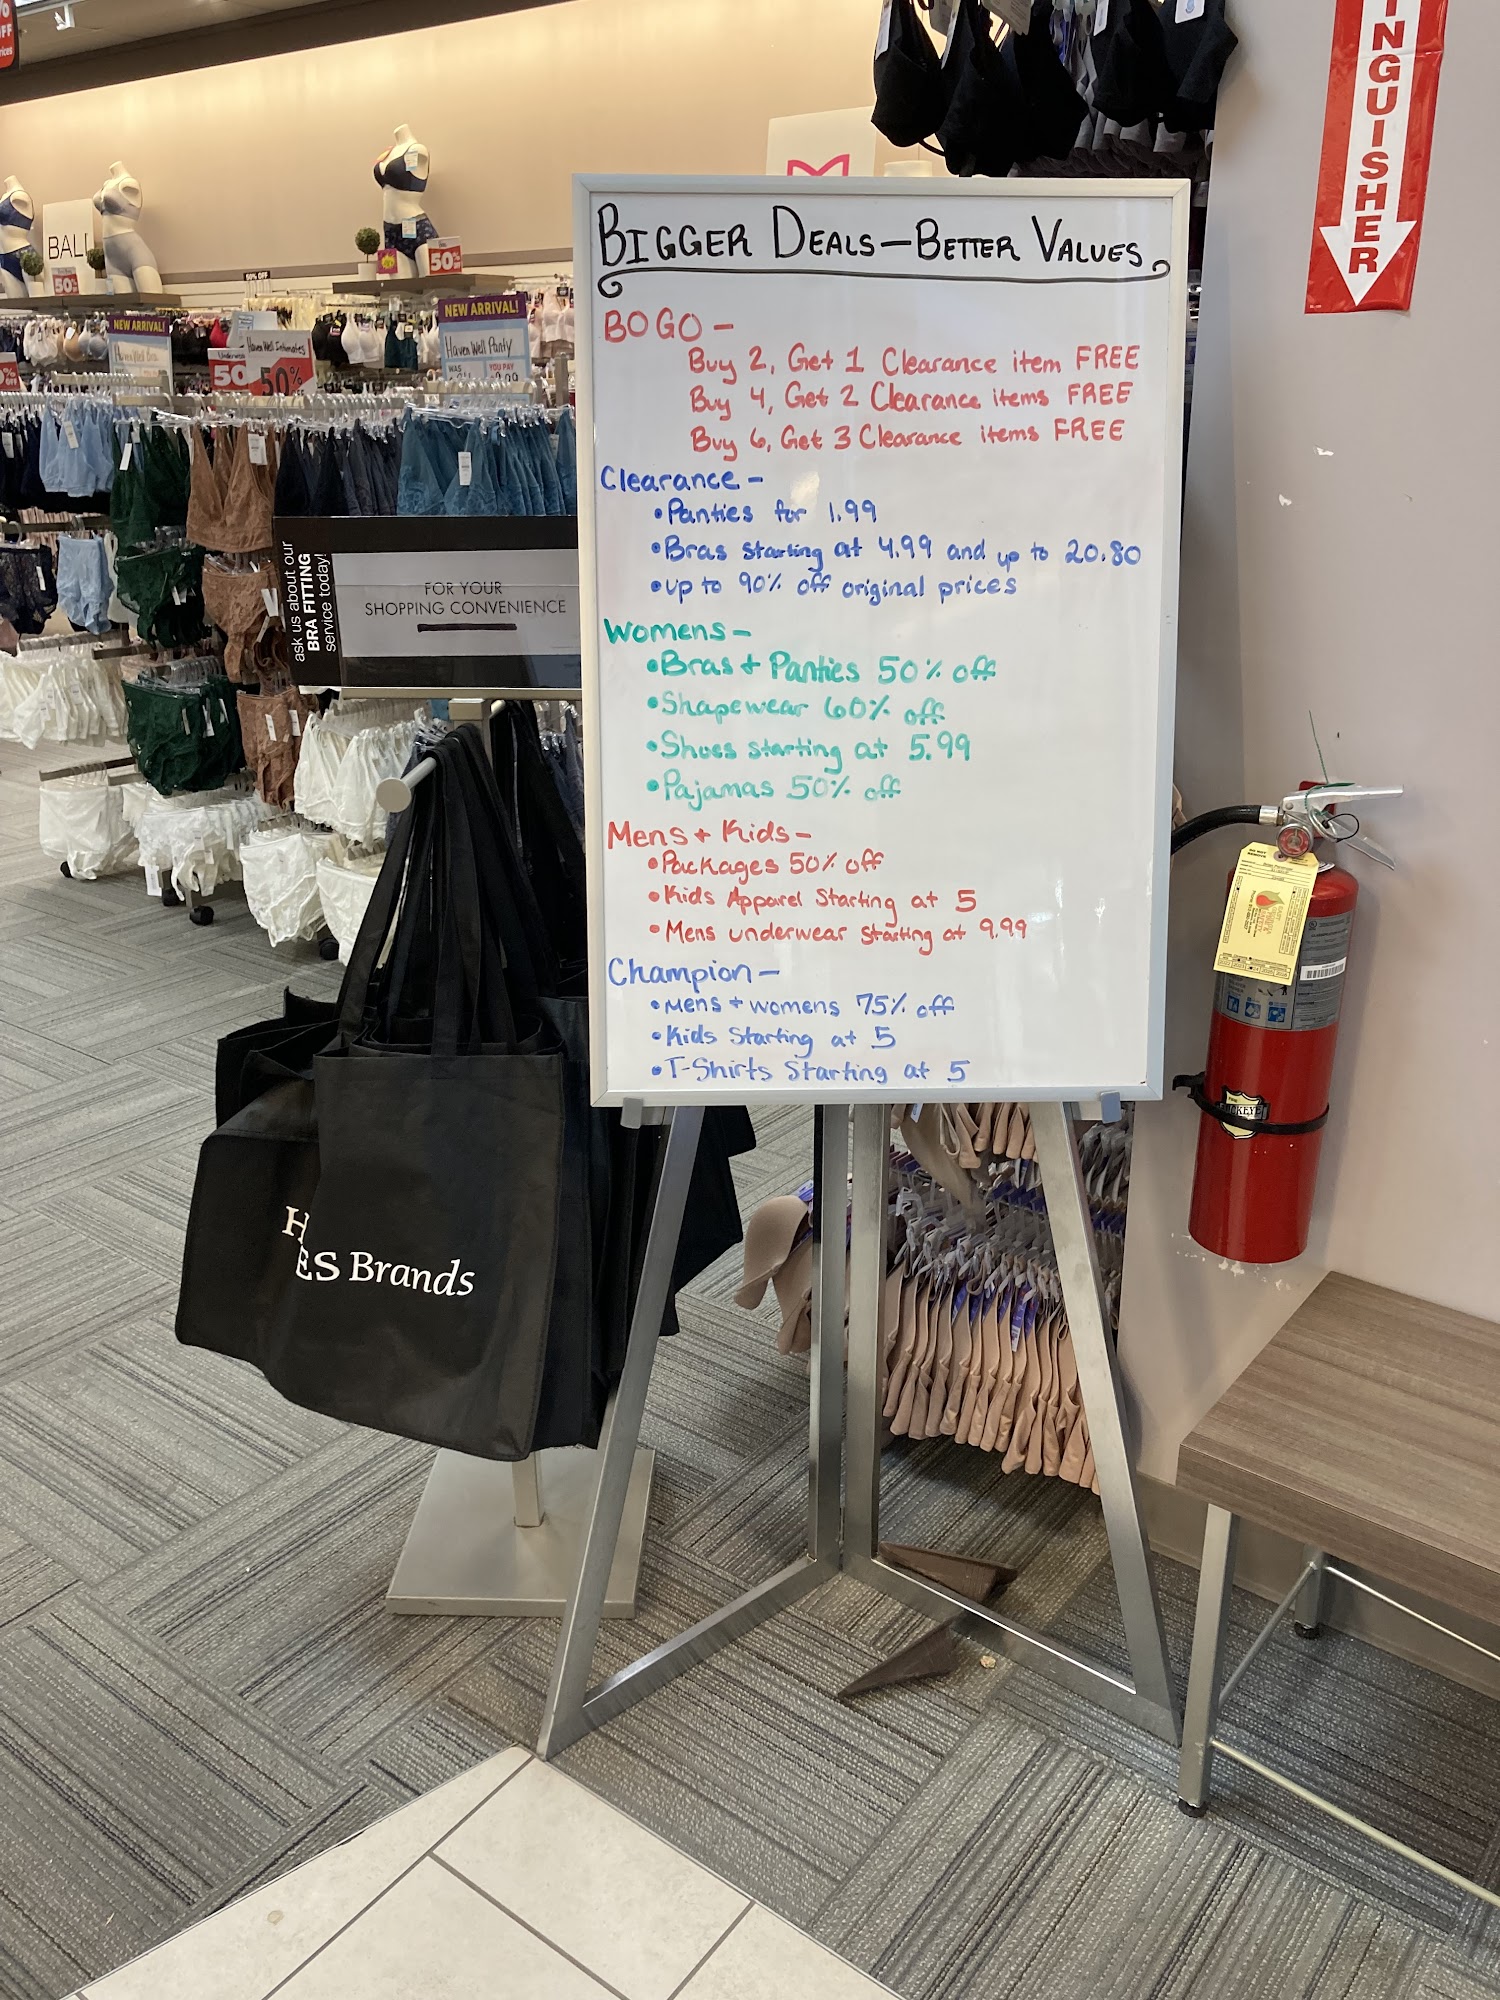 BIGGER DEALS—BETTER VALUES
BOGO—
Buy 2, Get 1 Clearance item FREE
Buy 4, Get 2 Clearance items FREE
Buy 6, Get 3 Clearance items FREE
Clearance—
•Panties for 1.99
•Bras starting at 4.99 and up to 20.80
•up to 90% off original prices
Womens—
•Bras + Panties 50% off
•Shapewear 60% off
•Shoes starting at 5.99
•Pajamas 50% off
Mens + Kids—
•Packages 50% off
•Kids Apparel Starting at 5
•Mens underwear starting at 9.99
Champion—
•Mens + womens 75% off
•Kids Starting at 5
•T-Shirts Starting at 5
ask us about our
BRA FITTING
service today!
FOR YOUR
SHOPPING CONVENIENCE
H
ES Brands
INGUISHER
BALI
50%
50%
50% OFF
NEW ARRIVAL!
NEW ARRIVAL!
HavenWell Panty
WAS
YOU PAY
HavenWell Intimates
50%
50
OFF